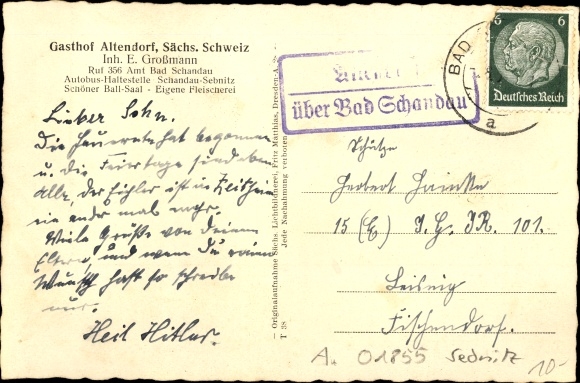 Gasthof Altendorf, Sächs. Schweiz
Inh. E. Großmann
Ruf 356 Amt Bad Schandau
Autobus-Haltestelle Schandau-Sebnitz
Schöner Ball-Saal - Eigene Fleischerei
Lieber Sohn.
Die Heuernte hat begonnen
u. die Feiertage sind
alle, der ist in Zeithain
mal
Viele Grüße von deinen
Eltern, und wenn du
Wunsch hast so schreibe
nur.
Heil Hitler.
Originalaufnahme Sächs. Lichtbildnerei, Fritz Matthias, Dresden-A.
Jede Nachahmung verboten
T 38
über Bad Schandau
BAD
a
6 6
Deutsches Reich
Schütze
Herbert
15 (E) I. R. 101.
Leisnig
Fischendorf.
A. 01855 Sebnitz
10-